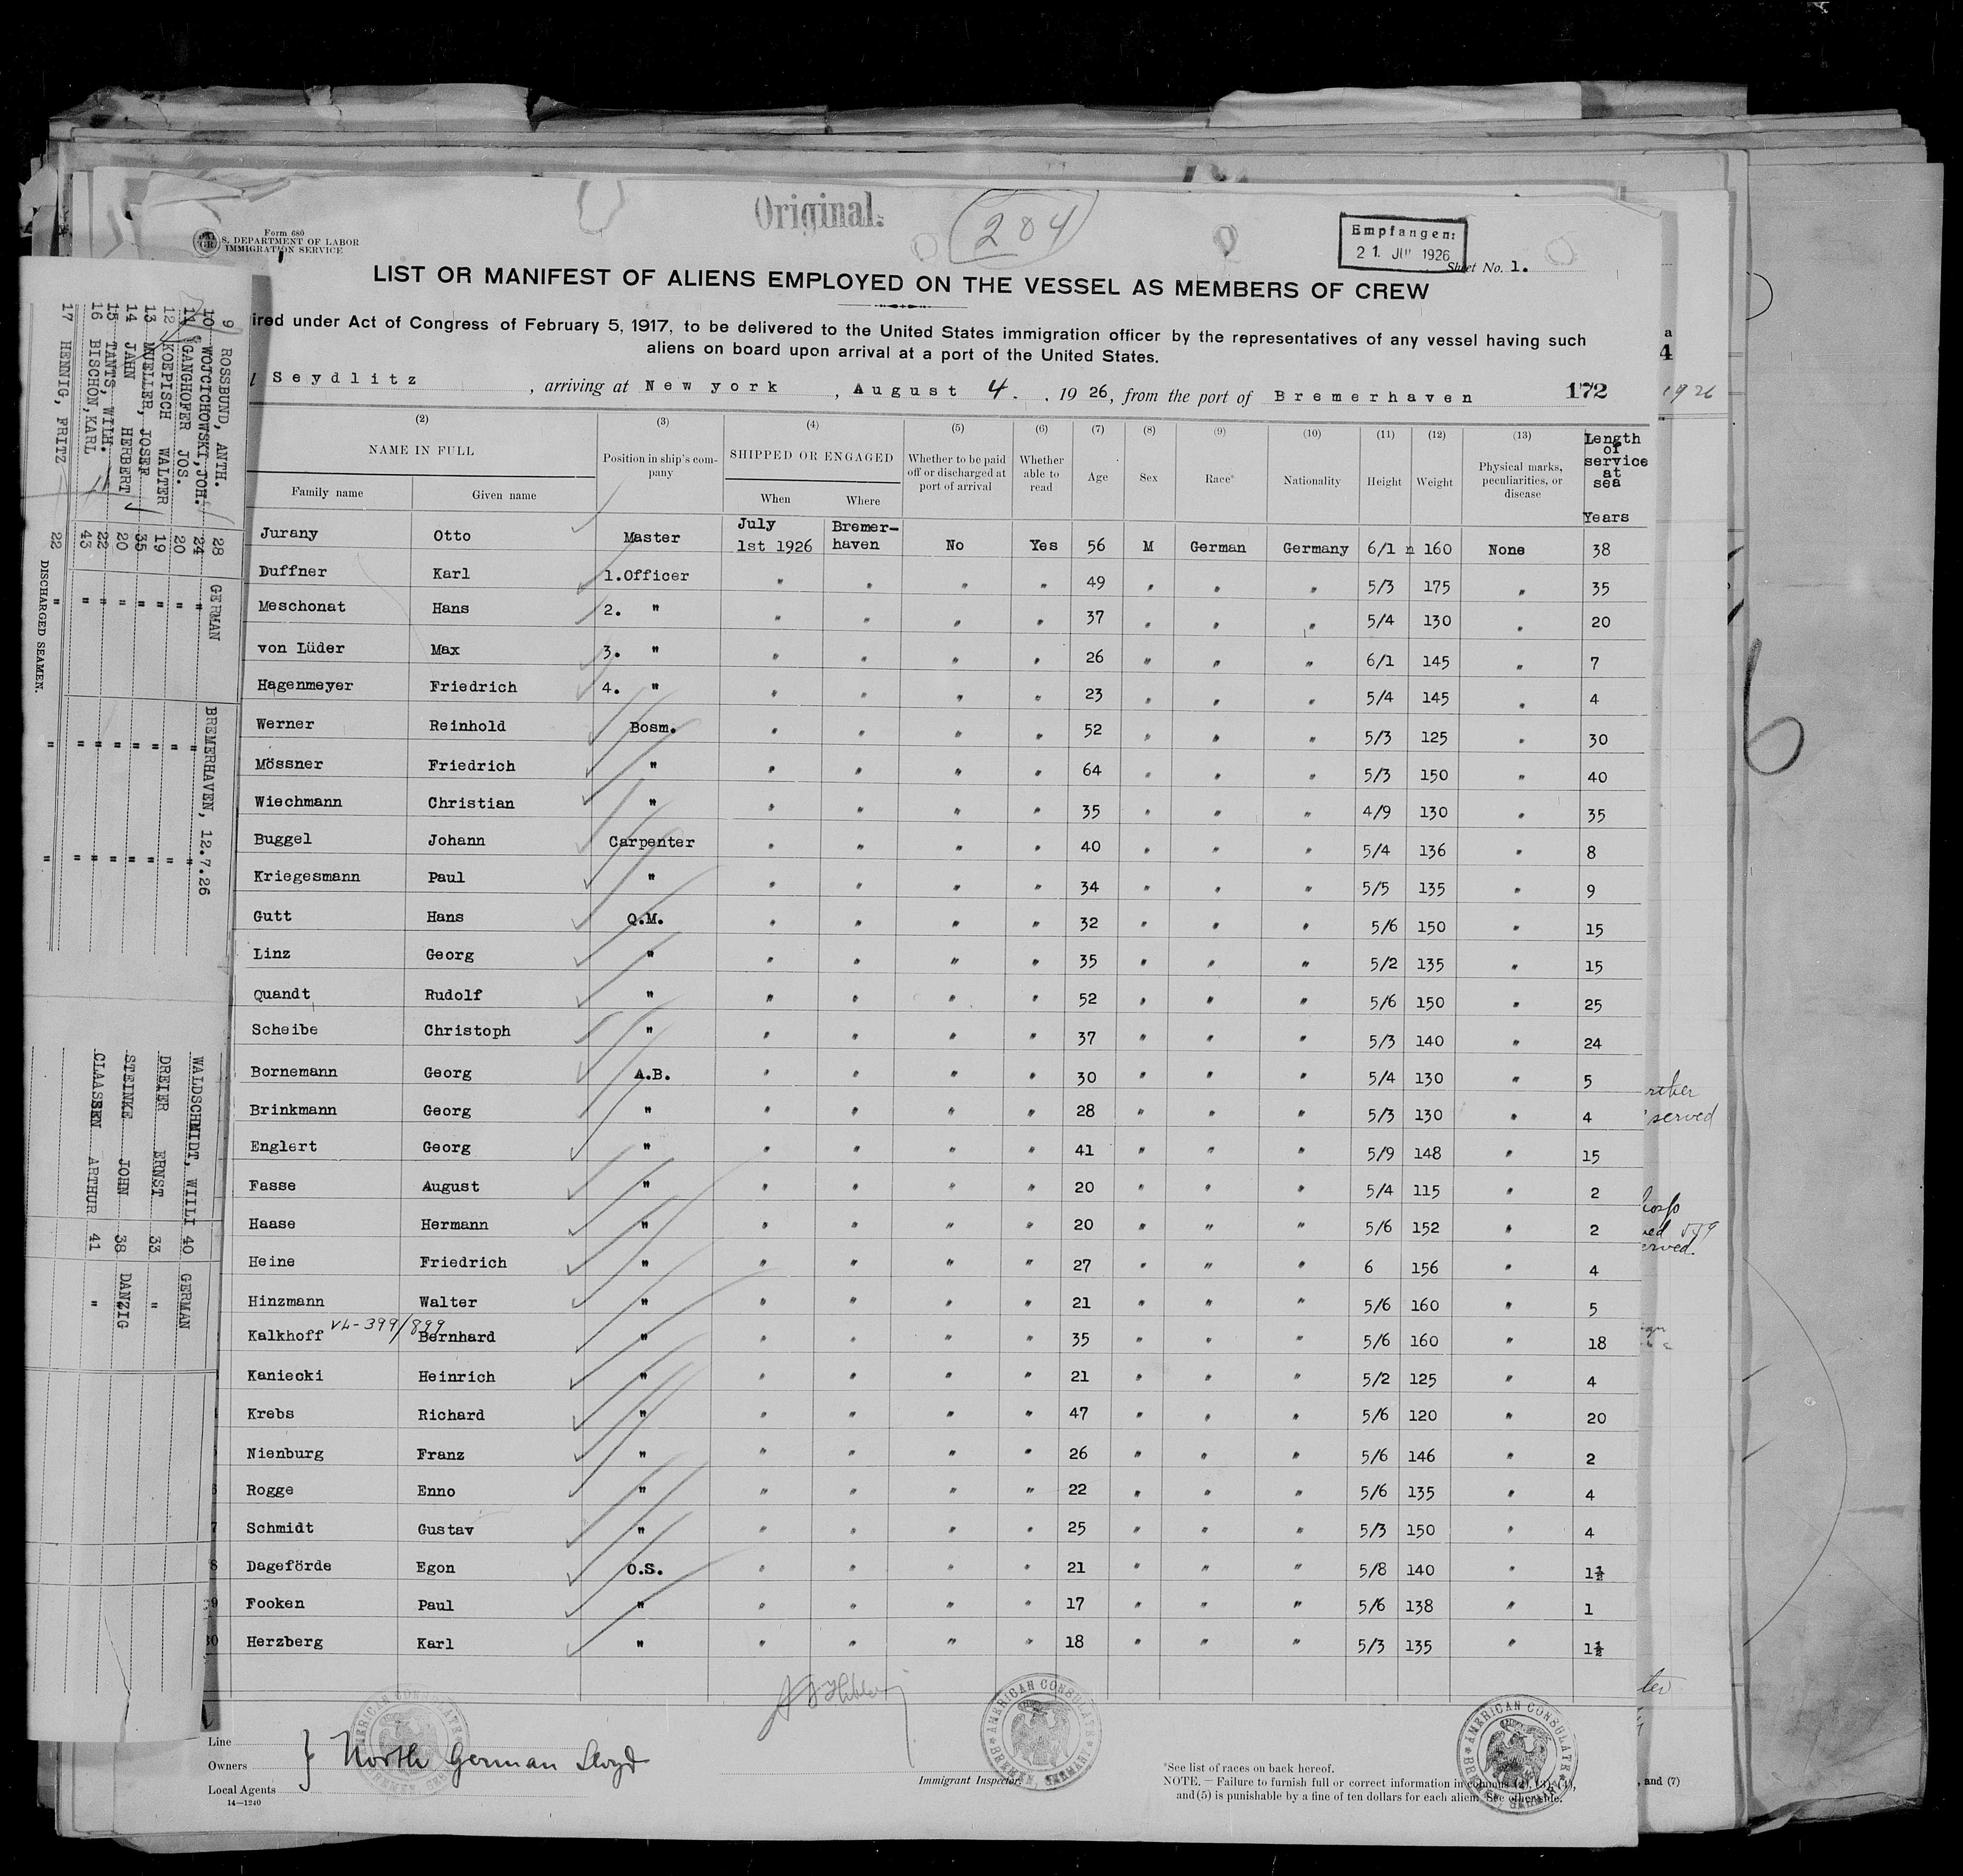 Original.
204
Form 680
S. DEPARTMENT OF LABOR
IMMIGRATION SERVICE
Empfangen:
21. 1926
Sheet No. 1.
LIST OR MANIFEST OF ALIENS EMPLOYED ON THE VESSEL AS MEMBERS OF CREW
ired under Act of Congress of February 5, 1917, to be delivered to the United States immigration officer by the representatives of any vessel having such
aliens on board upon arrival at a port of the United States.
Seydlitz, arriving at New york, August 4., 1926, from the port of Bremerhaven 172
(2) (3) (4) (5) (6) (7) (8) (9) (10) (11) (12) (13)
NAME IN FULL Position in ship's com-pany SHIPPED OR ENGAGED Whether to be paid off or discharged at port of arrival Whether able to read Age Sex Race* Nationality Height Weight Physical marks, peculiarities, or disease Length of service at sea
Family name Given name When Where Years
Jurany Otto Master July 1st 1926 Bremer-haven No Yes 56 M German Germany 6/1 160 None 38
Duffner Karl 1.Officer " " " " 49 " " " 5/3 175 " 35
Meschonat Hans 2. " " " " " 37 " " " 5/4 130 " 20
von Lüder Max 3. " " " " " 26 " " " 6/1 145 " 7
Hagenmeyer Friedrich 4. " " " " " 23 " " " 5/4 145 " 4
Werner Reinhold Bosm. " " " " 52 " " " 5/3 125 " 30
Mössner Friedrich " " " " " 64 " " " 5/3 150 " 40
Wiechmann Christian " " " " " 35 " " " 4/9 130 " 35
Buggel Johann Carpenter " " " " 40 " " " 5/4 136 " 8
Kriegesmann Paul " " " " " 34 " " " 5/5 135 " 9
Gutt Hans Q.M. " " " " 32 " " " 5/6 150 " 15
Linz Georg " " " " " 35 " " " 5/2 135 " 15
Quandt Rudolf " " " " " 52 " " " 5/6 150 " 25
Scheibe Christoph " " " " " 37 " " " 5/3 140 " 24
Bornemann Georg A.B. " " " " 30 " " " 5/4 130 " 5
Brinkmann Georg " " " " " 28 " " " 5/3 130 " 4
Englert Georg " " " " " 41 " " " 5/9 148 " 15
Fasse August " " " " " 20 " " " 5/4 115 " 2
Haase Hermann " " " " " 20 " " " 5/6 152 " 2
Heine Friedrich " " " " " 27 " " " 6 156 " 4
Hinzmann Walter " " " " " 21 " " " 5/6 160 " 5
VL-399/899
Kalkhoff Bernhard " " " " " 35 " " " 5/6 160 " 18
Kaniecki Heinrich " " " " " 21 " " " 5/2 125 " 4
Krebs Richard " " " " " 47 " " " 5/6 120 " 20
Nienburg Franz " " " " " 26 " " " 5/6 146 " 2
Rogge Enno " " " " " 22 " " " 5/6 135 " 4
Schmidt Gustav " " " " " 25 " " " 5/3 150 " 4
Dageförde Egon O.S. " " " " 21 " " " 5/8 140 " 1½
Fooken Paul " " " " " 17 " " " 5/6 138 " 1
Herzberg Karl " " " " " 18 " " " 5/3 135 " 1½
Line
Owners
Local Agents
14—1240
North German Lloyd
Immigrant Inspector.
*See list of races on back hereof.
NOTE. – Failure to furnish full or correct information in columns (2), (3), (4),
and (5) is punishable by a fine of ten dollars for each alien. See other side.
AMERICAN CONSULATE
BREMEN, GERMANY
AMERICAN CONSULATE
BREMEN, GERMANY
9 ROSSBUND, ANTH. 28 GERMAN BREMERHAVEN, 12.7.26
10 WOJCICHOWSKI, JOH. 24 " " "
11 GANGHOFER JOS. 20 " " "
12 KOEPISCH WALTER 19 " " "
13 MUELLER, JOSEF 35 " " "
14 JAHN HERBERT 20 " " "
15 TANTS, WILH. 22 " " "
16 BISCHON, KARL 43 " " "
17 HENNIG, FRITZ 22 " " "
DISCHARGED SEAMEN.
WALDSCHMIDT, WILLI 40 GERMAN
DREIER ERNST 33 "
STEINKE JOHN 38 DANZIG
CLAASEN ARTHUR 41 "
1926
served
erved.
, and (7)